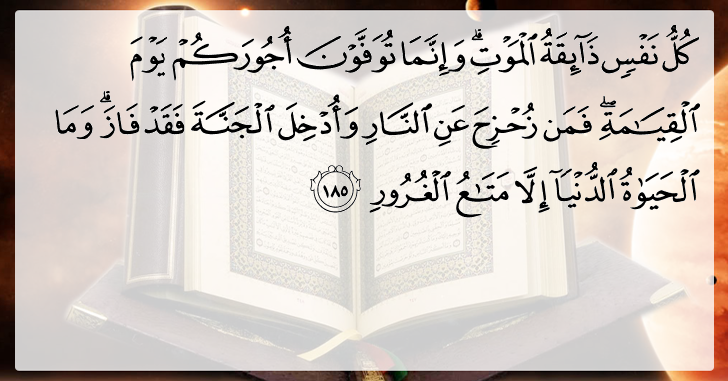 كُلُّ نَفْسٍ ذَآئِقَةُ ٱلْمَوْتِۗ وَإِنَّمَا تُوَفَّوْنَ أُجُورَكُمْ يَوْمَ
ٱلْقِيَـٰمَةِۖ فَمَن زُحْزِحَ عَنِ ٱلنَّارِ وَأُدْخِلَ ٱلْجَنَّةَ فَقَدْ فَازَۗ وَمَا
ٱلْحَيَوٰةُ ٱلدُّنْيَآ إِلَّا مَتَـٰعُ ٱلْغُرُورِ ١٨٥